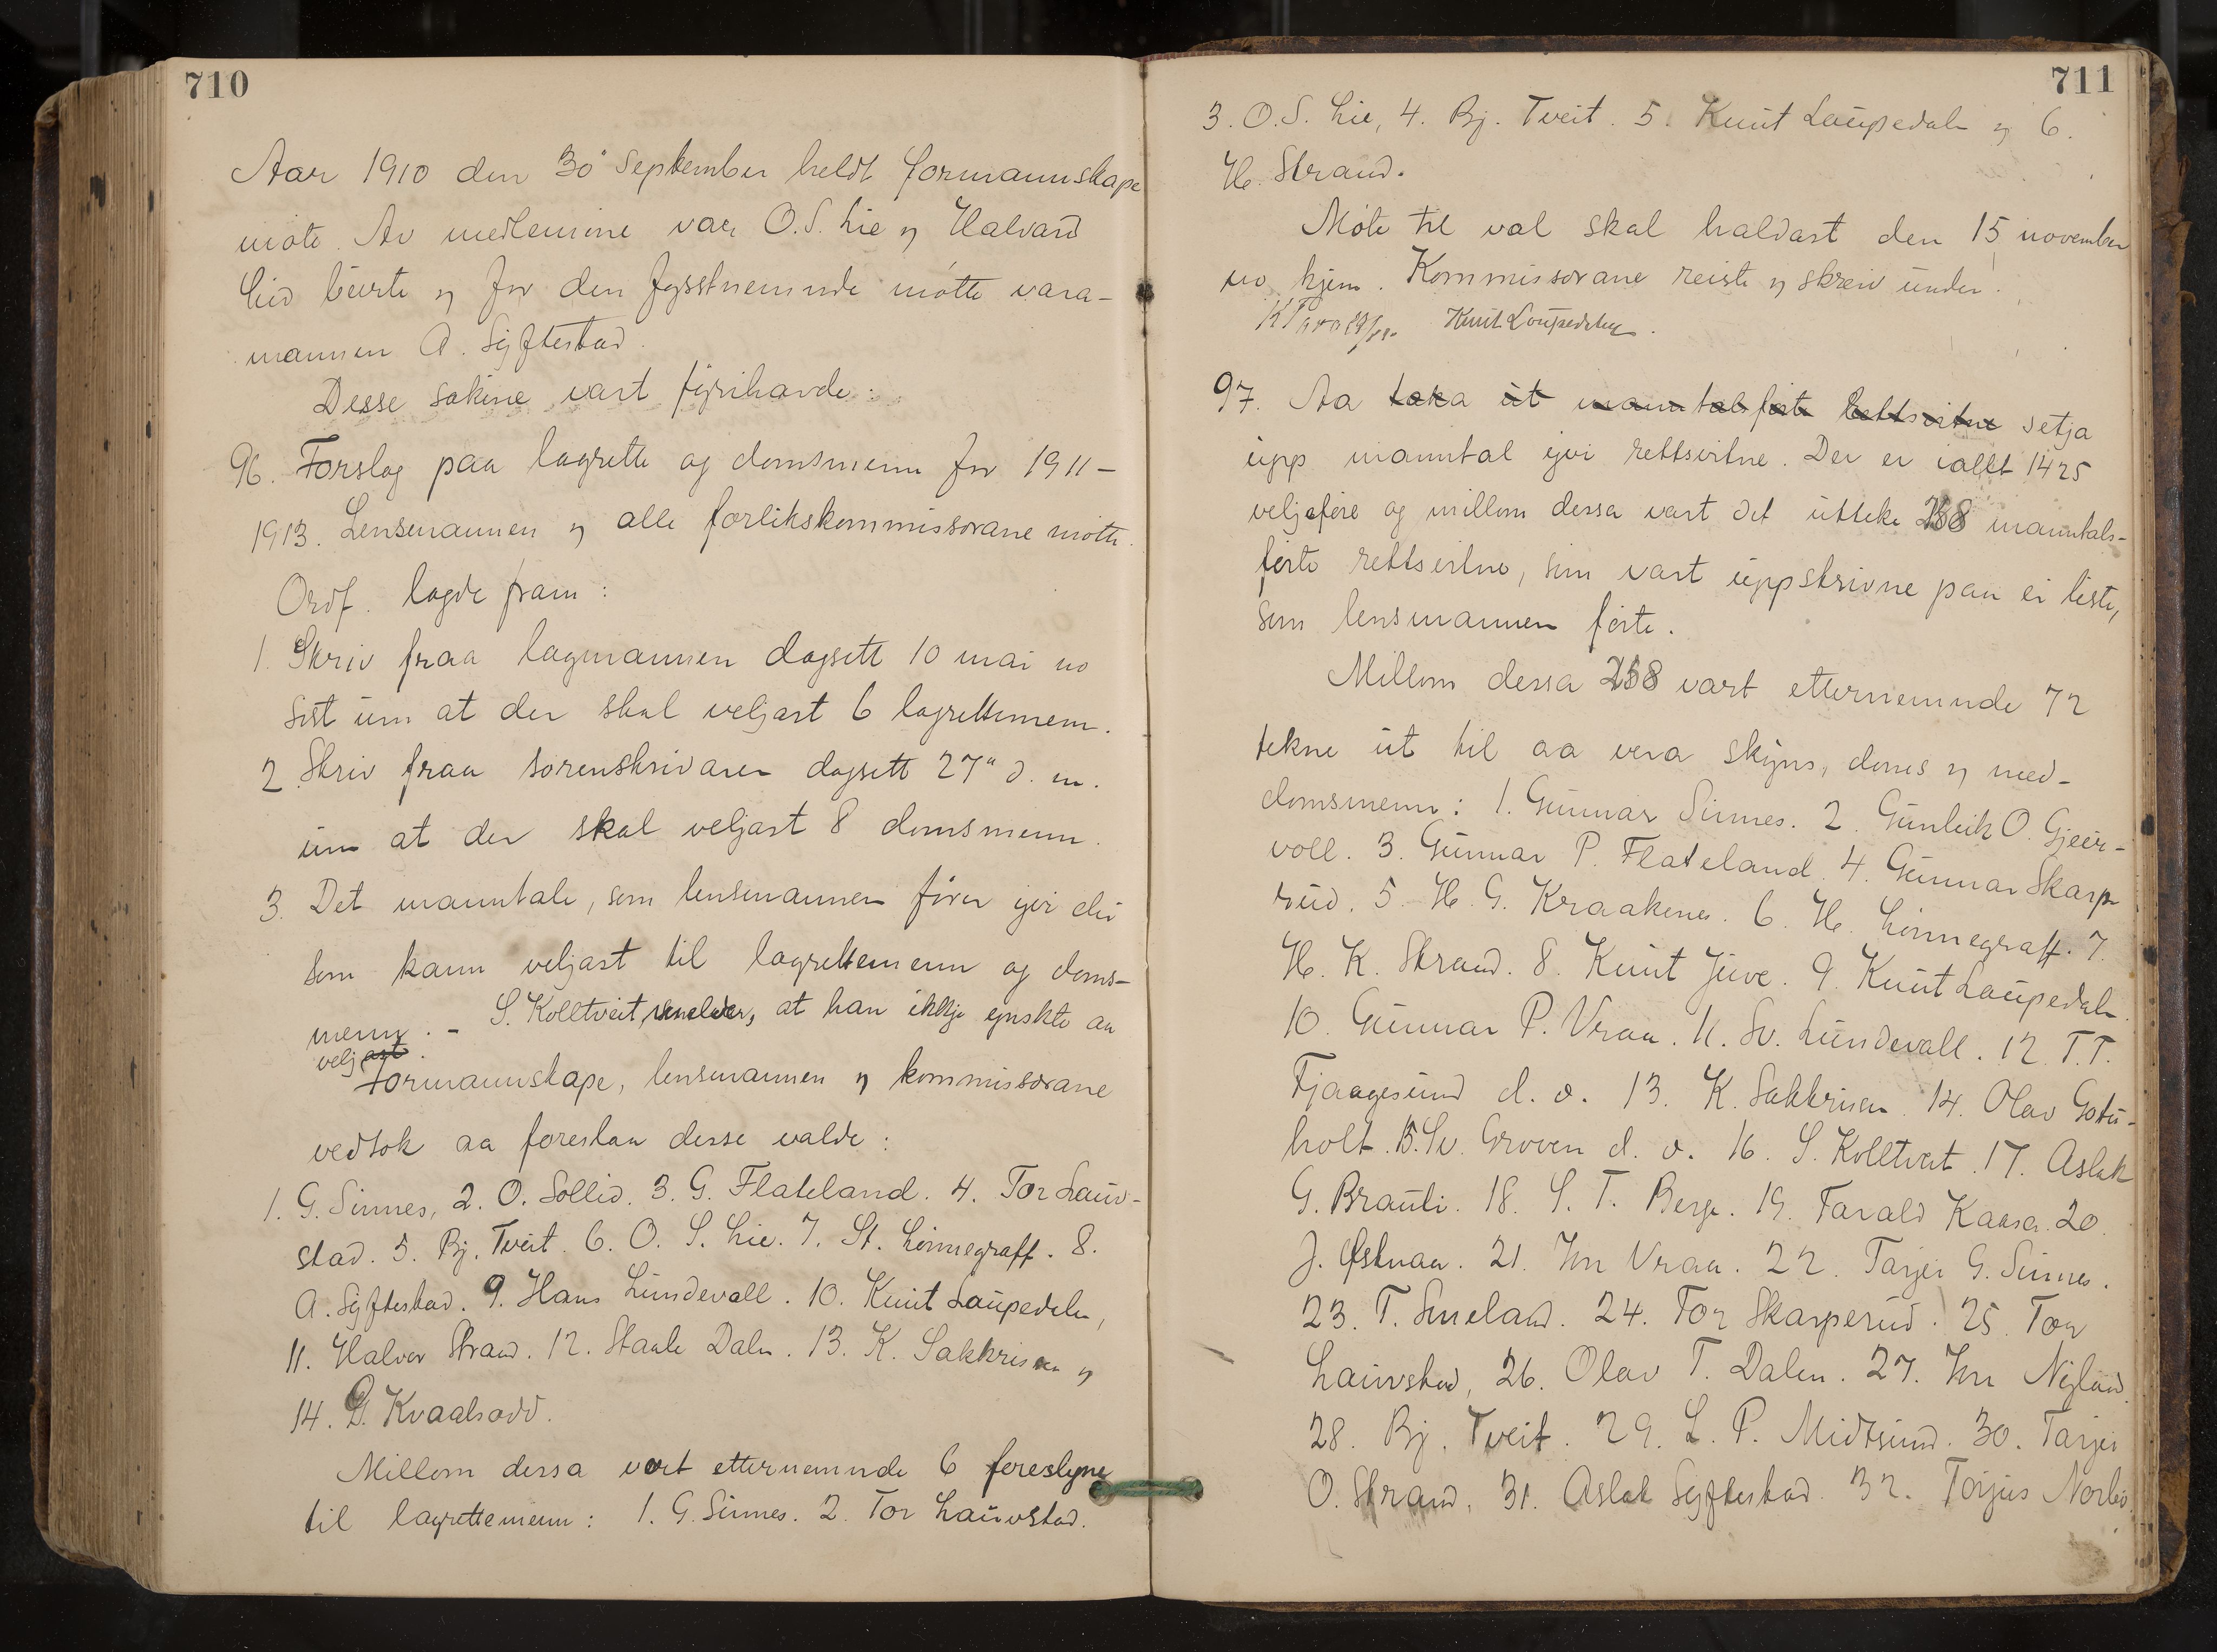 710
Aar 1910 den 30' September heldt formannskape
møte. Av medlemine var O.S. Lie og Halvard
Lid burte og for den fysstnemnde møtte vara-
mannen A. Syftestad.
Desse sakine vart fyrihavde:
96. Forslag paa lagrette og domsmenn for 1911-
1913. Lensmannen og alle forlikskommissørane møtte.
Ordf. lagde fram:
1. Skriv fraa lagmannen dagsett 10 mai no
sist um at der skal veljast 6 lagrettemenn.
2. Skriv fraa sorenskrivaren dagsett 27" d. m.
um at der skal veljast 8 domsmenn.
3. Det manntale, som lensmannen fører yvi dei
som kann veljast til lagrettemenn og doms-
menn. - S. Kolltveit, at han ikkje ynskte aa
veljast.
Formannskape, lensmannen og kommissørane
vedtok aa foreslaa desse valde:
1. G. Sinnes, 2. O. Sollid. 3. G. Flateland. 4. Tor Lauv-
stad. 5. Bj. Tveit. 6. O. S. Lie. 7. St. Lønnegraff. 8.
A. Syftestad. 9. Hans Lundevall. 10. Knut Laupedalen,
11. Halvor Strand. 12. Staale Dalen. 13. K. Sakkrisen og
14. G. Kvaalsodd.
Millom dessa vart etternemnde 6 foreslegne
til lagrettemenn: 1. G. Sinnes. 2. Tor Lauvstad.
711
3. O.S. Lie, 4. Bj. Tveit. 5. Knut Laupedalen og 6.
H. Strand.
Møte til val skal haldast den 15 november
no kjem. Kommissørane reiste og skreiv under.
Knut Loupedalen.
97. Aa taka ut manntalsførte rettsvitne setja
upp manntal yvi rettsvitne. Der er iallt 1425
veljeføre og millom dessa vart det utteke 258 manntals-
førte rettsvitne, som vart uppskrivne paa ei liste,
som lensmannen førte.
Millom dessa 258 vart etternemnde 72
tekne ut til aa vera skjyns, doms og med-
domsmenn: 1. Gunnar Sinnes. 2. Gunleik O. Gjeur-
voll. 3. Gunnar P. Flateland. 4. Gunnar Skarpe-
rud. 5. H. G. Kraakenes. 6. H. Lønnegraff. 7.
H. K. Strand. 8. Knut Juve. 9. Knut Laupedalen.
10. Gunnar P. Vraa. 11. Sv. Lundevall. 12. T.T.
Fjaagesund d. e. 13. K. Sakkrisen. 14. Olav Gotu-
holt. 15. Sv. Groven d. e. 16. S. Kolltveit. 17. Aslak
G. Brauti. 18. S. T. Berge. 19. Tarald Kaasa. 20.
J. Østraa. 21. Jon Vraa. 22. Tarjei G. Sinnes.
23. T. Smeland. 24. Tor Skarperud. 25. Tor
Lauvstad, 26. Olav T. Dalen. 27. Jon Nyland.
28. Bj. Tveit. 29. L. P. Midtsund. 30. Tarjei
O. Strand. 31. Aslak Syftestad. 32. Torjus Norbø.